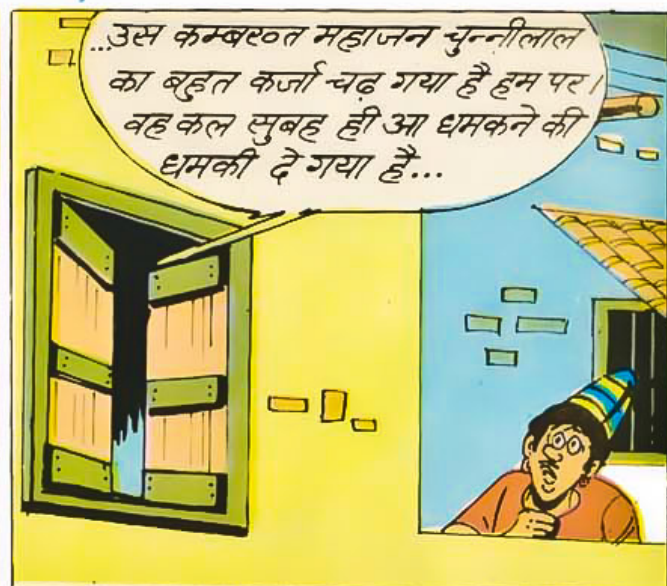 ...उस कम्बख्त महाजन चुन्नीलाल
का बहुत कर्जा चढ़ गया है हम पर।
वह कल सुबह ही आ धमकने की
धमकी दे गया है...